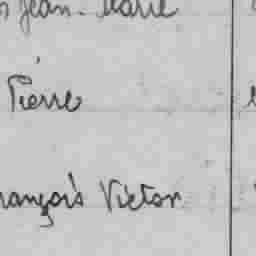 Jean-Marie
Pierre
François Victor